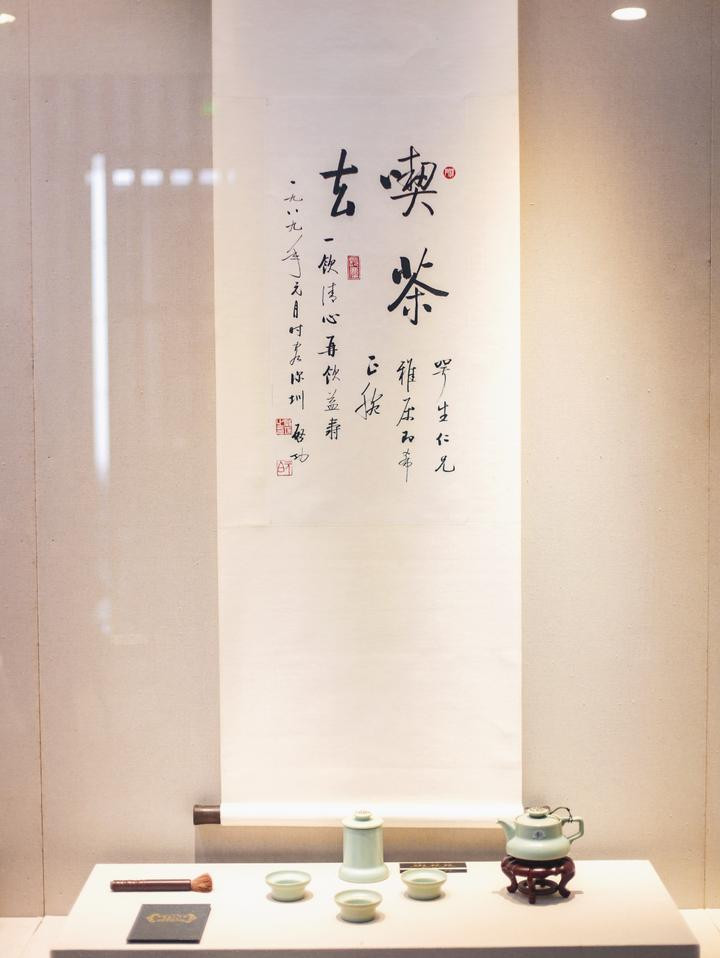 喫茶
去
咢生仁兄
雅属即希
正腕
一飲清心再飲益壽
一九八九年元月时客深圳 啟功